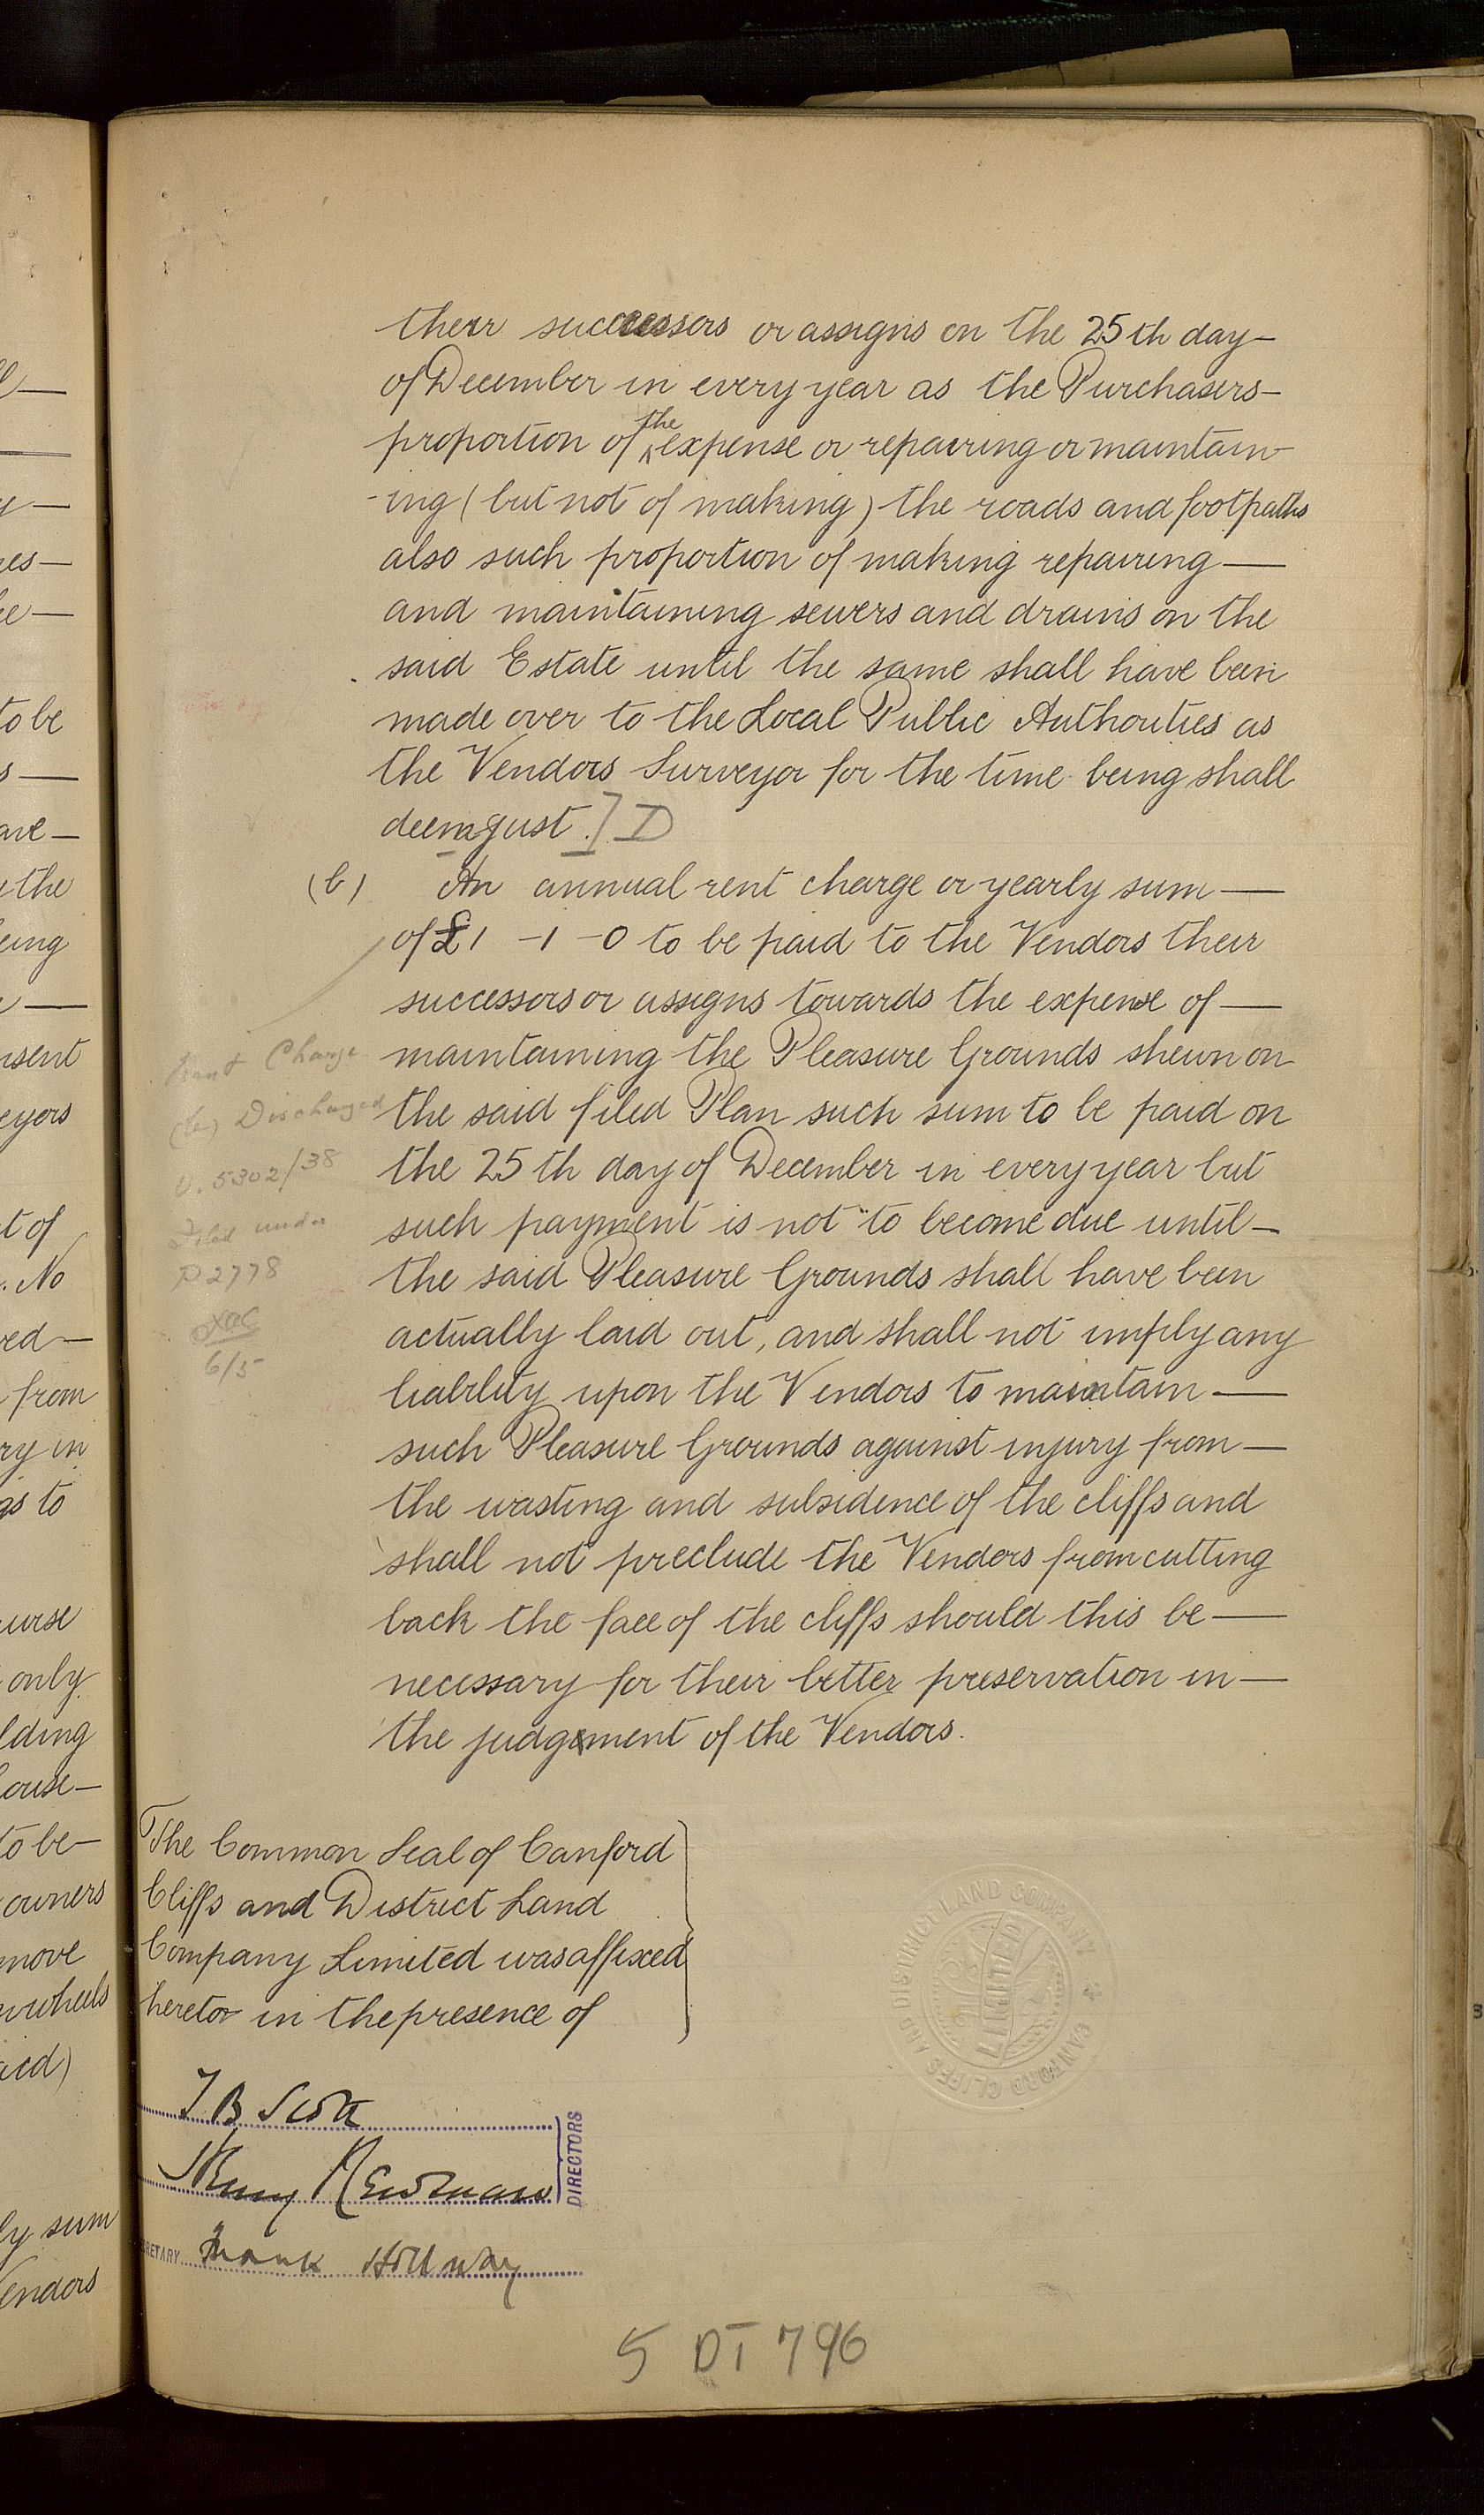 their successors or assigns on the 25th day—
of December in every year as the Purchasers—
proportion of the expense or repairing or maintain
-ing (but not of making) the roads and footpaths
also such proportion of making repairing—
and maintaining sewers and drains on the
said Estate until the same shall have been
made over to the Local Public Authorities as
the Vendors Surveyor for the time being shall
deem just.] D
(b) An annual rent charge or yearly sum—
of £1-1-0 to be paid to the Vendors their
successors or assigns towards the expense of—
maintaining the Pleasure Grounds shewn on
the said filed Plan such sum to be paid on
the 25th day of December in every year but
such payment is not to become due until—
the said Pleasure Grounds shall have been
actually laid out, and shall not imply any
liability upon the Vendors to maintain—
such Pleasure Grounds against injury from—
the wasting and subsidence of the cliffs and
shall not preclude the Vendors from cutting
back the face of the cliffs should this be—
necessary for their better preservation in—
the judgement of the Vendors.
Rent Charge
(b) Discharged
V. 5302/38
Filed under
P2778
6/5
The Common Seal of Canford
Cliffs and District Land
Company Limited was affixed
hereto in the presence of
CANFORD CLIFFS AND DISTRICT LAND COMPANY
LIMITED
J B Scott
Henry Newman
DIRECTORS
RETARY Frank Hollway
5 DT 796
l—
y—
res—
he—
to be
s—
ave—
the
eing
nsent
eyors
t of
. No
red—
from
ry in
gs to
urse
only
lding
ouse—
to be—
owners
move
wheels
aid)
ly sum
endors